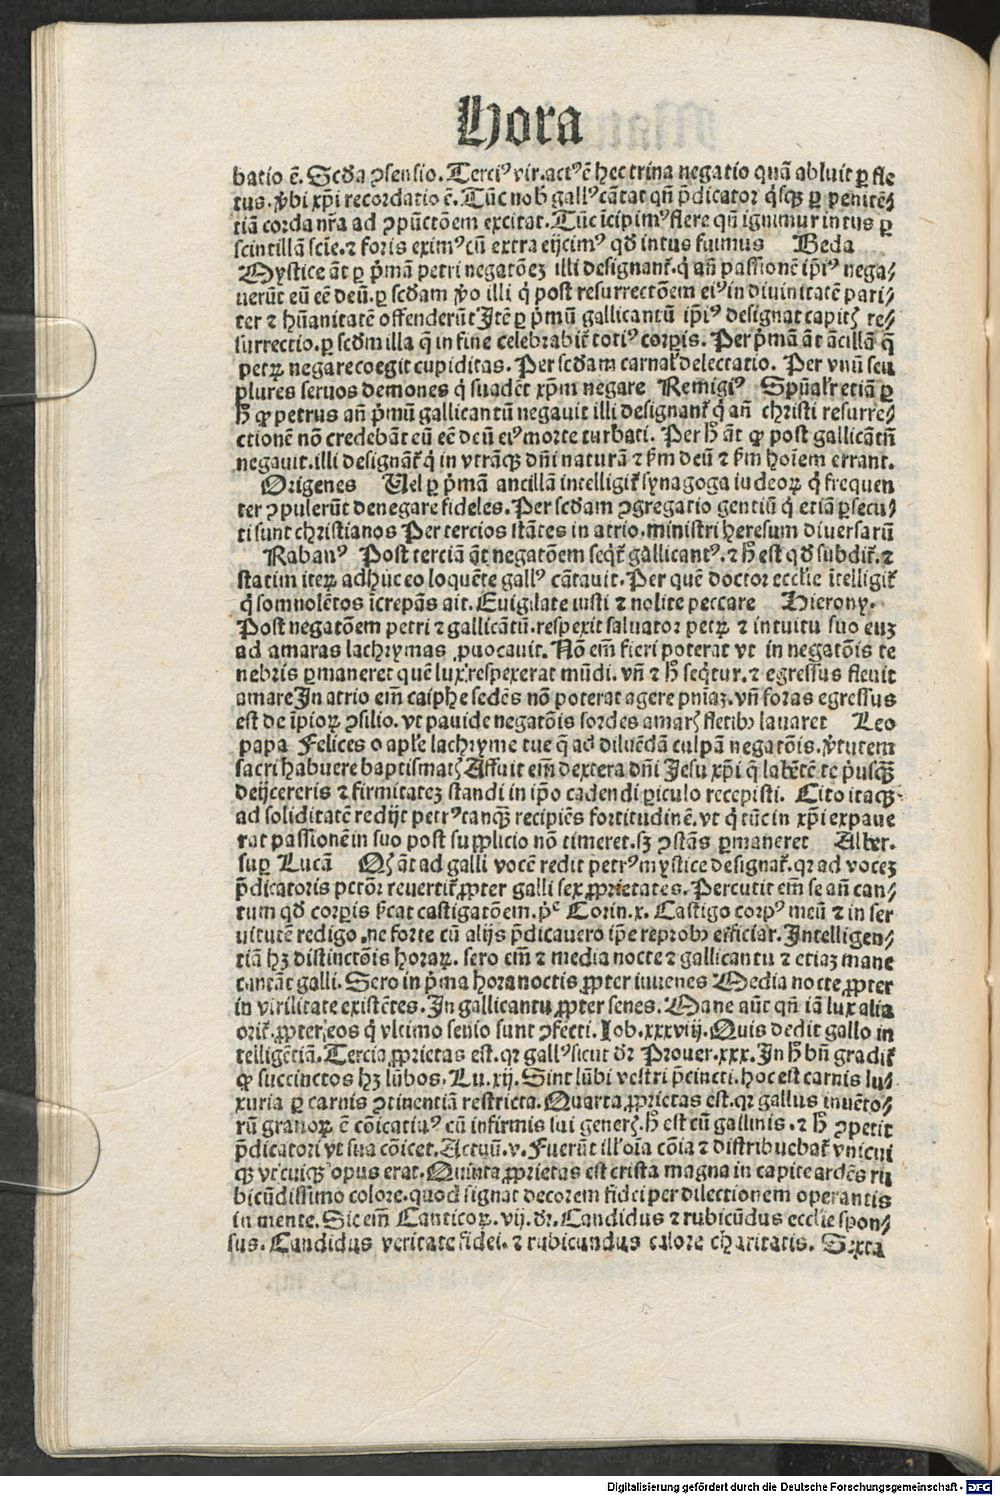 Hora
batio ē. Scd̄a ꝯsensio. Terciꝰ vir. actꝰ ē hec trina negatio quā abluit ꝑ fle
tus. v̾bi xp̄i recordatio ē. Tūc nob̄ gallꝰ cātat qn̄ p̄dicator q̇sqꝫ ꝑ peniten⸗
tiā corda nr̄a ad ꝯpūctōem excitat. Tūc īcipimꝰ flere qn̄ ignimur intus ꝑ
scintillā scīe. ⁊ foris eximꝰ cū extra eijcimꝰ qd̄ intus fuimus Beda
Mystice āt ꝑ p̄mā petri negatōeꝫ illi designant᷑. q̇ an̄ passionē ip̄iꝰ nega⸗
uerūt eū eē deū. ꝑ scd̄am v̾o illi q̇ post resurrectōem eiꝰ in diuinitatē pari⸗
ter ⁊ hūanitatē offenderūt Itē ꝑ p̄mū gallicantū ip̄iꝰ designat capitꝭ re⸗
surrectio. ꝑ scd̄m illa q̄ in fine celebrabit᷑ totiꝰ corꝑis. Per p̄mā āt ācillā q̄
petꝝ negare coegit cupiditas. Per scd̄am carnal᷑ delectatio. Per vnū seu
plures seruos demones q̇ suadēt xp̄m negare Remigiꝰ Spūal᷑r etiā ꝑ
h̄ ꝙ petrus an̄ p̄mū gallicantū negauit illi designant᷑ q̇ an̄ christi resurre⸗
ctionē nō credebāt eū eē deū eiꝰ morte turbati. Per h̄ āt ꝙ post gallicātū
negauit. illi designāt᷑ q̇ in vtrāqꝫ dn̄i naturā ⁊ ẜm deū ⁊ ẜm hoīem errant.
Origenes Uel ꝑ p̄mā ancillā intelligit᷑ synagoga iudeoꝝ q̇ frequen
ter ꝯpulerūt denegare fideles. Per scd̄am ꝯgregatio gentiū q̇ etiā ꝑsecu⸗
ti sunt christianos Per tercios stātes in atrio. ministri heresum diuersarū
Rabanꝰ Post terciā āt negatōem seqt᷑ gallicantꝰ. ⁊ h̄ est qd̄ subdit᷑. ⁊
statim iteꝝ adhuc eo loquēte gallꝰ cātauit. Per quē doctor ecclīe ītelligit᷑
q̇ somnolētos īcrepās ait. Euigilate iusti ⁊ nolite peccare Hierony.
Post negatōem petri ⁊ gallicātū. respexit saluator petꝝ ⁊ intuitu suo euꝫ
ad amaras lachrymas ꝓuocauit. Nō em̄ fieri poterat vt in negatōis te
nebris ꝑmaneret quē lux respexerat mūdi. vn̄ ⁊ h̄ seq̇tur. ⁊ egressus fleuit
amare In atrio em̄ caiphe sedēs nō poterat agere pn̄iaꝫ. vn̄ foras egressus
est de īpioꝝ ꝯsilio. vt pauide negatōis sordes amarꝭ fletibꝰ lauaret Leo
papa Felices o apl̄e lachryme tue q̄ ad diluēdā culpā negatōis. v̾tutem
sacri habuere baptismatꝭ Affuit em̄ dextera dn̄i Jesu xp̄i q̄ labētē te ṗusqꝫ
deijcereris ⁊ firmitateꝫ standi in ip̄o cadendi ꝑiculo recepisti. Cito itaqꝫ
ad soliditatē redijt petrꝰ tanqꝫ recipiēs fortitudinē. vt q̇ tūc in xp̄i expaue
rat passionē in suo post supplicio nō timeret. sꝫ ꝯstās ꝑmaneret Alber.
suꝑ Lucā Qꝭ āt ad galli vocē redit petrꝰ mystice designat᷑. qꝛ ad voceꝫ
p̄dicatoris pctōꝛ reuertit᷑ ꝓpter galli sex ꝓprietates. Percutit em̄ se an̄ can⸗
tum qd̄ corꝑis ẜcat castigatōem. p̄ᶜ Corin.x. Castigo corpꝰ meū ⁊ in ser
uitutē redigo. ne forte cū alijs p̄dicauero ip̄e reprobꝰ efficiar. Intelligen⸗
tiā hꝫ distinctōis horaꝝ. sero em̄ ⁊ media nocte ⁊ gallicantu ⁊ etiaꝫ mane
cantāt galli. Sero in p̄ma hora noctis ꝓpter iuuenes Media nocte ꝓpter
in virilitate existētes. In gallicantu ꝓpter senes. Mane aūt qn̄ iā lux alia
orit᷑. ꝓpter eos q̇ vltimo senio sunt ꝯfecti. Iob.xxxviij. Quis dedit gallo in
telligētiā. Tercia ꝓprietas est. qꝛ gallꝰ sicut dr̄ Prouer.xxx. In h̄ bn̄ gradit᷑
ꝙ succinctos hꝫ lūbos. Lu.xij. Sint lūbi vestri p̄cincti. hoc est carnis lu⸗
xuria ꝑ carnis ꝯtinentiā restricta. Quarta ꝓprietas est. qꝛ gallus inuēto⸗
rū granoꝝ ē cōicatiuꝰ cū infirmis sui generꝭ. h̄ est cū gallinis. ⁊ h̄ ꝯpetit
p̄dicatori vt sua cōicet. Actuū.v. Fuerūt ill᷑ oīa cōia ⁊ distribuebāt᷑ vnicui
qꝫ vt cuiqꝫ opus erat. Quinta ꝓprietas est crista magna in capite ardēs ru
bicūdissimo colore. quod signat decorem fidei per dilectionem operantis
in mente. Sic em̄ Canticoꝝ.vij. dr̄. Candidus ⁊ rubicūdus ecclīe spon⸗
sus. Candidus veritate fidei. ⁊ rubicundus calore charitatis. Sexta
Digitalisierung gefördert durch die Deutsche Forschungsgemeinschaft - DFG